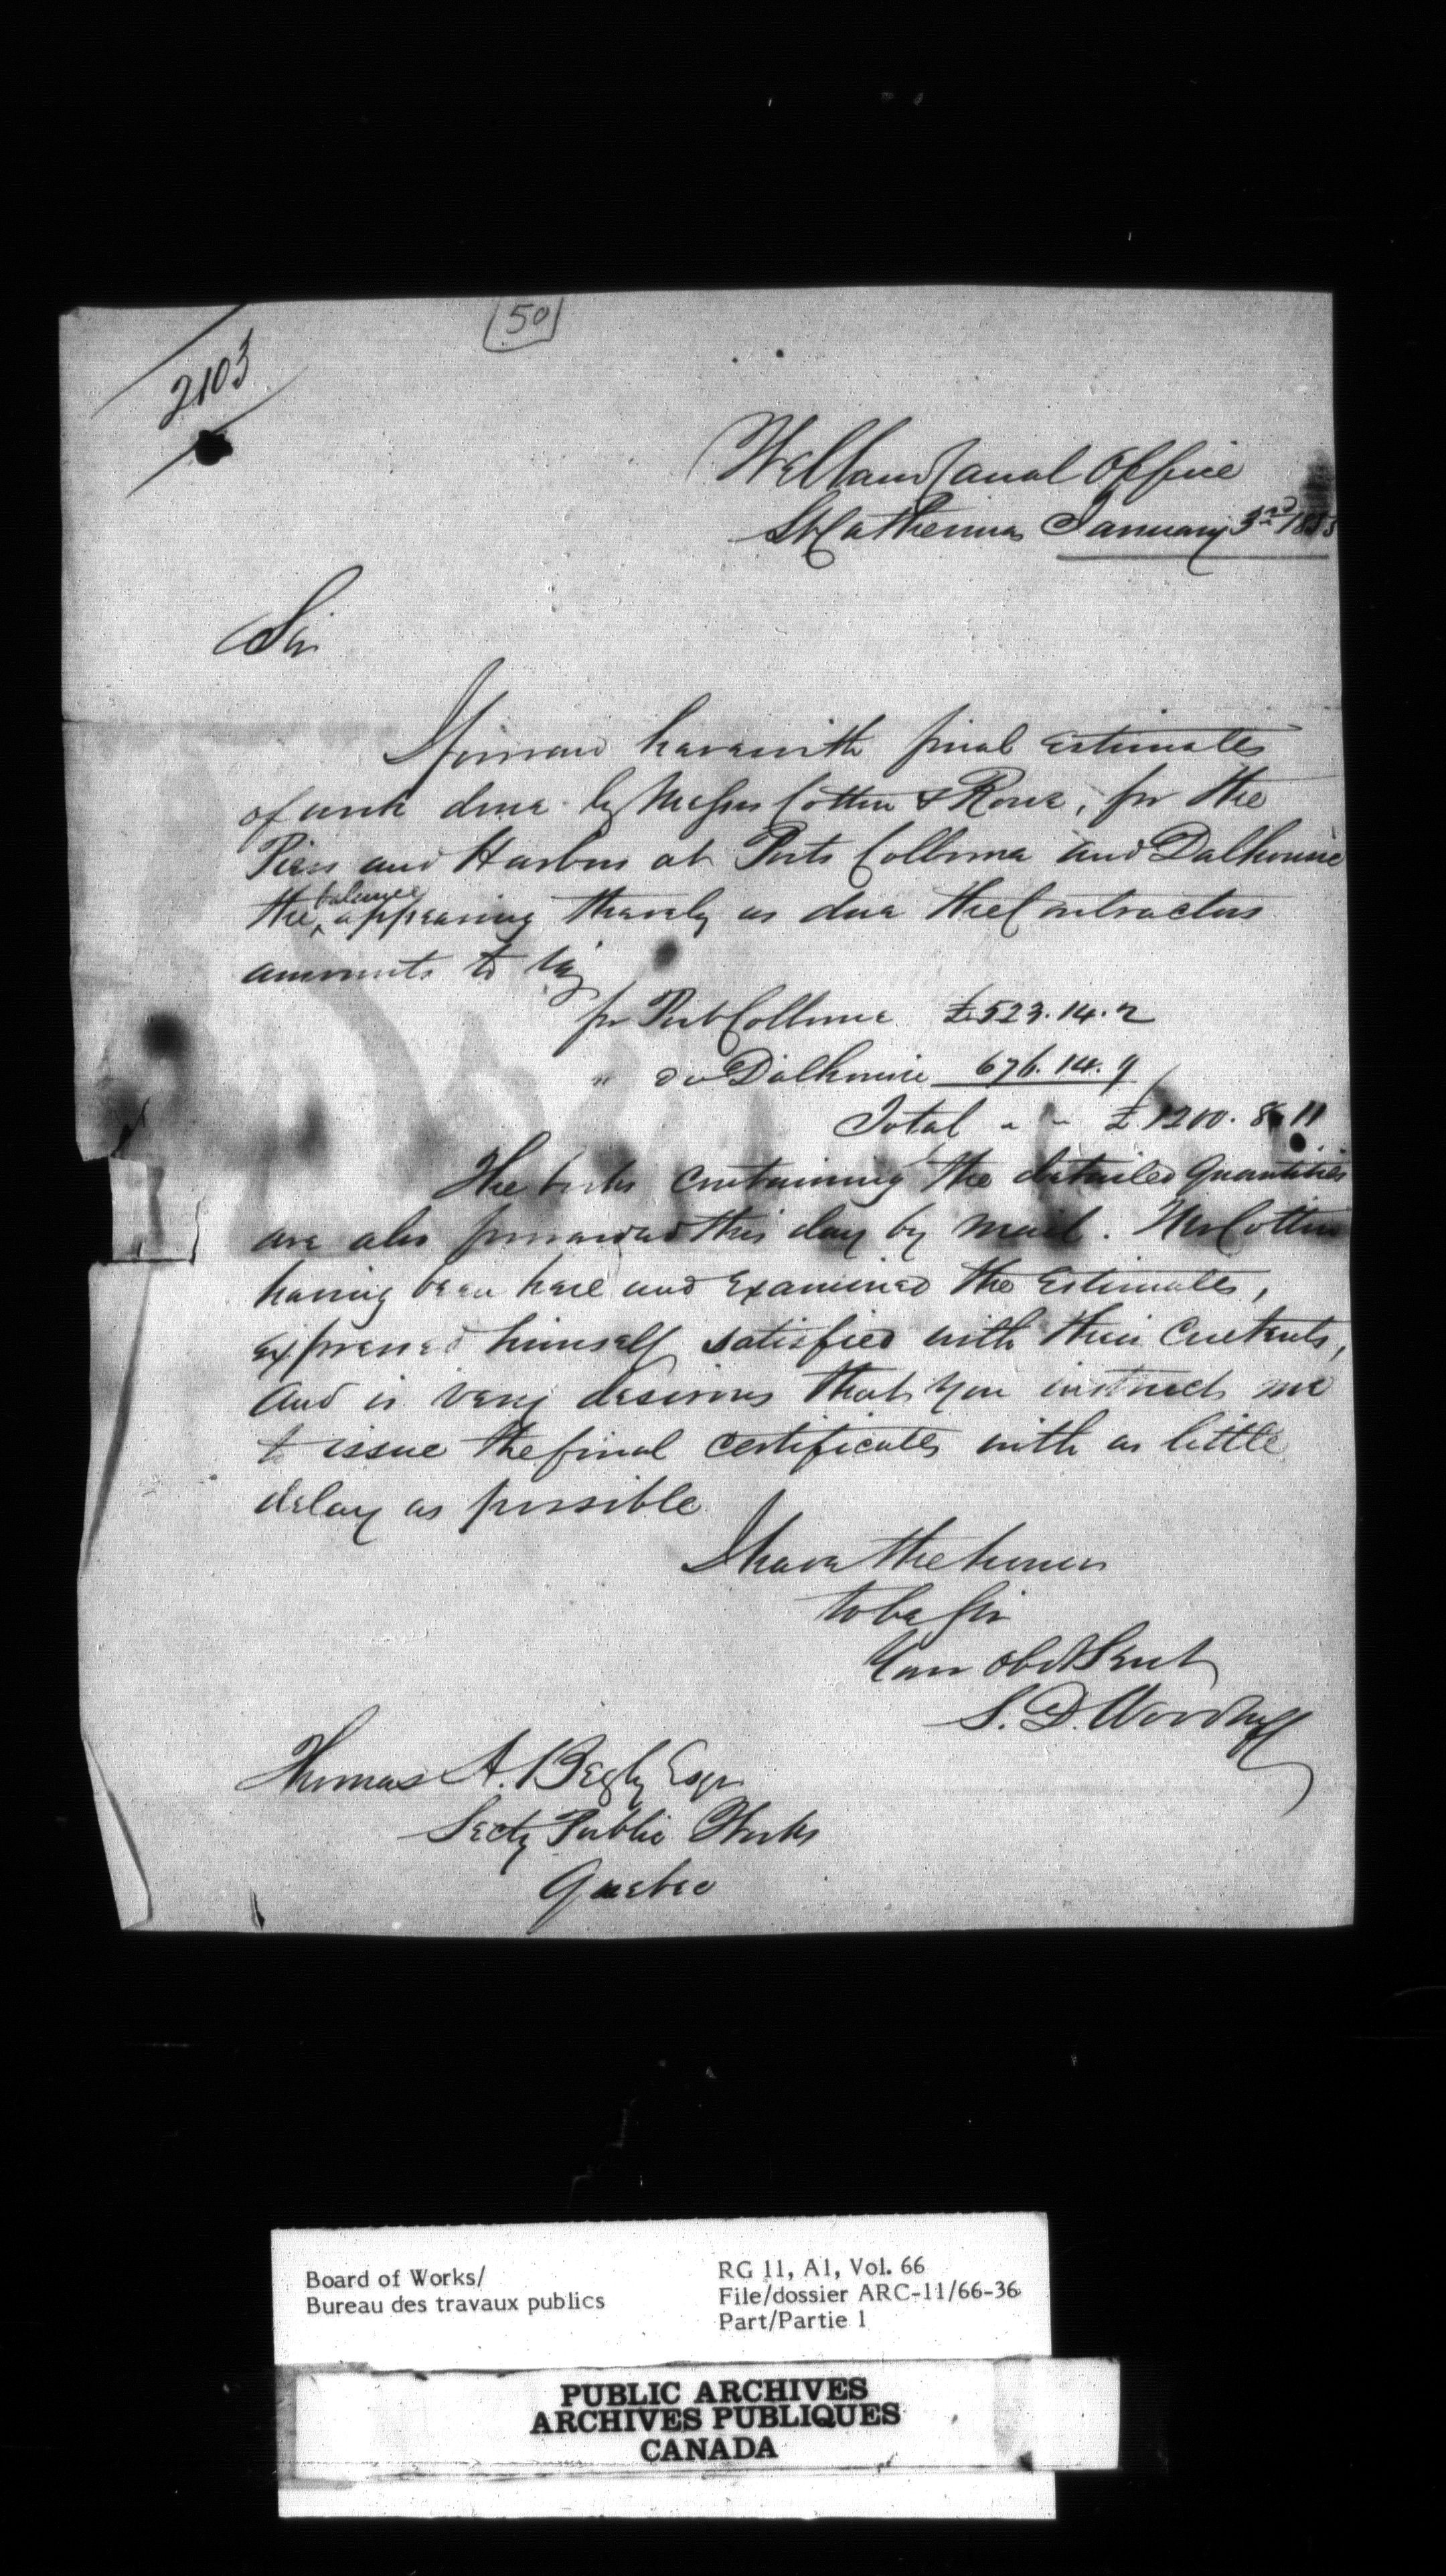 50
2103
Welland Canal Office
St Catherines January 3rd 1853
Sir
I forward herewith final estimates
of work done by Messrs Cotten & Rowe, for the
Piers and Harbors at Ports Colborne and Dalhousie
the balance appearing thereby as due the Contractors
amounts to viz
for Port Colborne £523.14.2
" do Dalhousie 676.14.9
Total " " £1200.8.11
The books containing the detailed Quantities
are also forwarded this day by mail. Mr Cotten
having been here and examined the Estimates,
expressed himself satisfied with their Contents,
and is very desirous that you instruct me
to issue the final certificates with as little
delay as possible
I have the honor
to be Sir
Your obdt Servt
S. D. Woodruff
Thomas A. Begly Esqr
Secty Public Works
Quebec
Board of Works/
Bureau des travaux publics
RG 11, A1, Vol. 66
File/dossier ARC-11/66-36
Part/Partie 1
PUBLIC ARCHIVES
ARCHIVES PUBLIQUES
CANADA